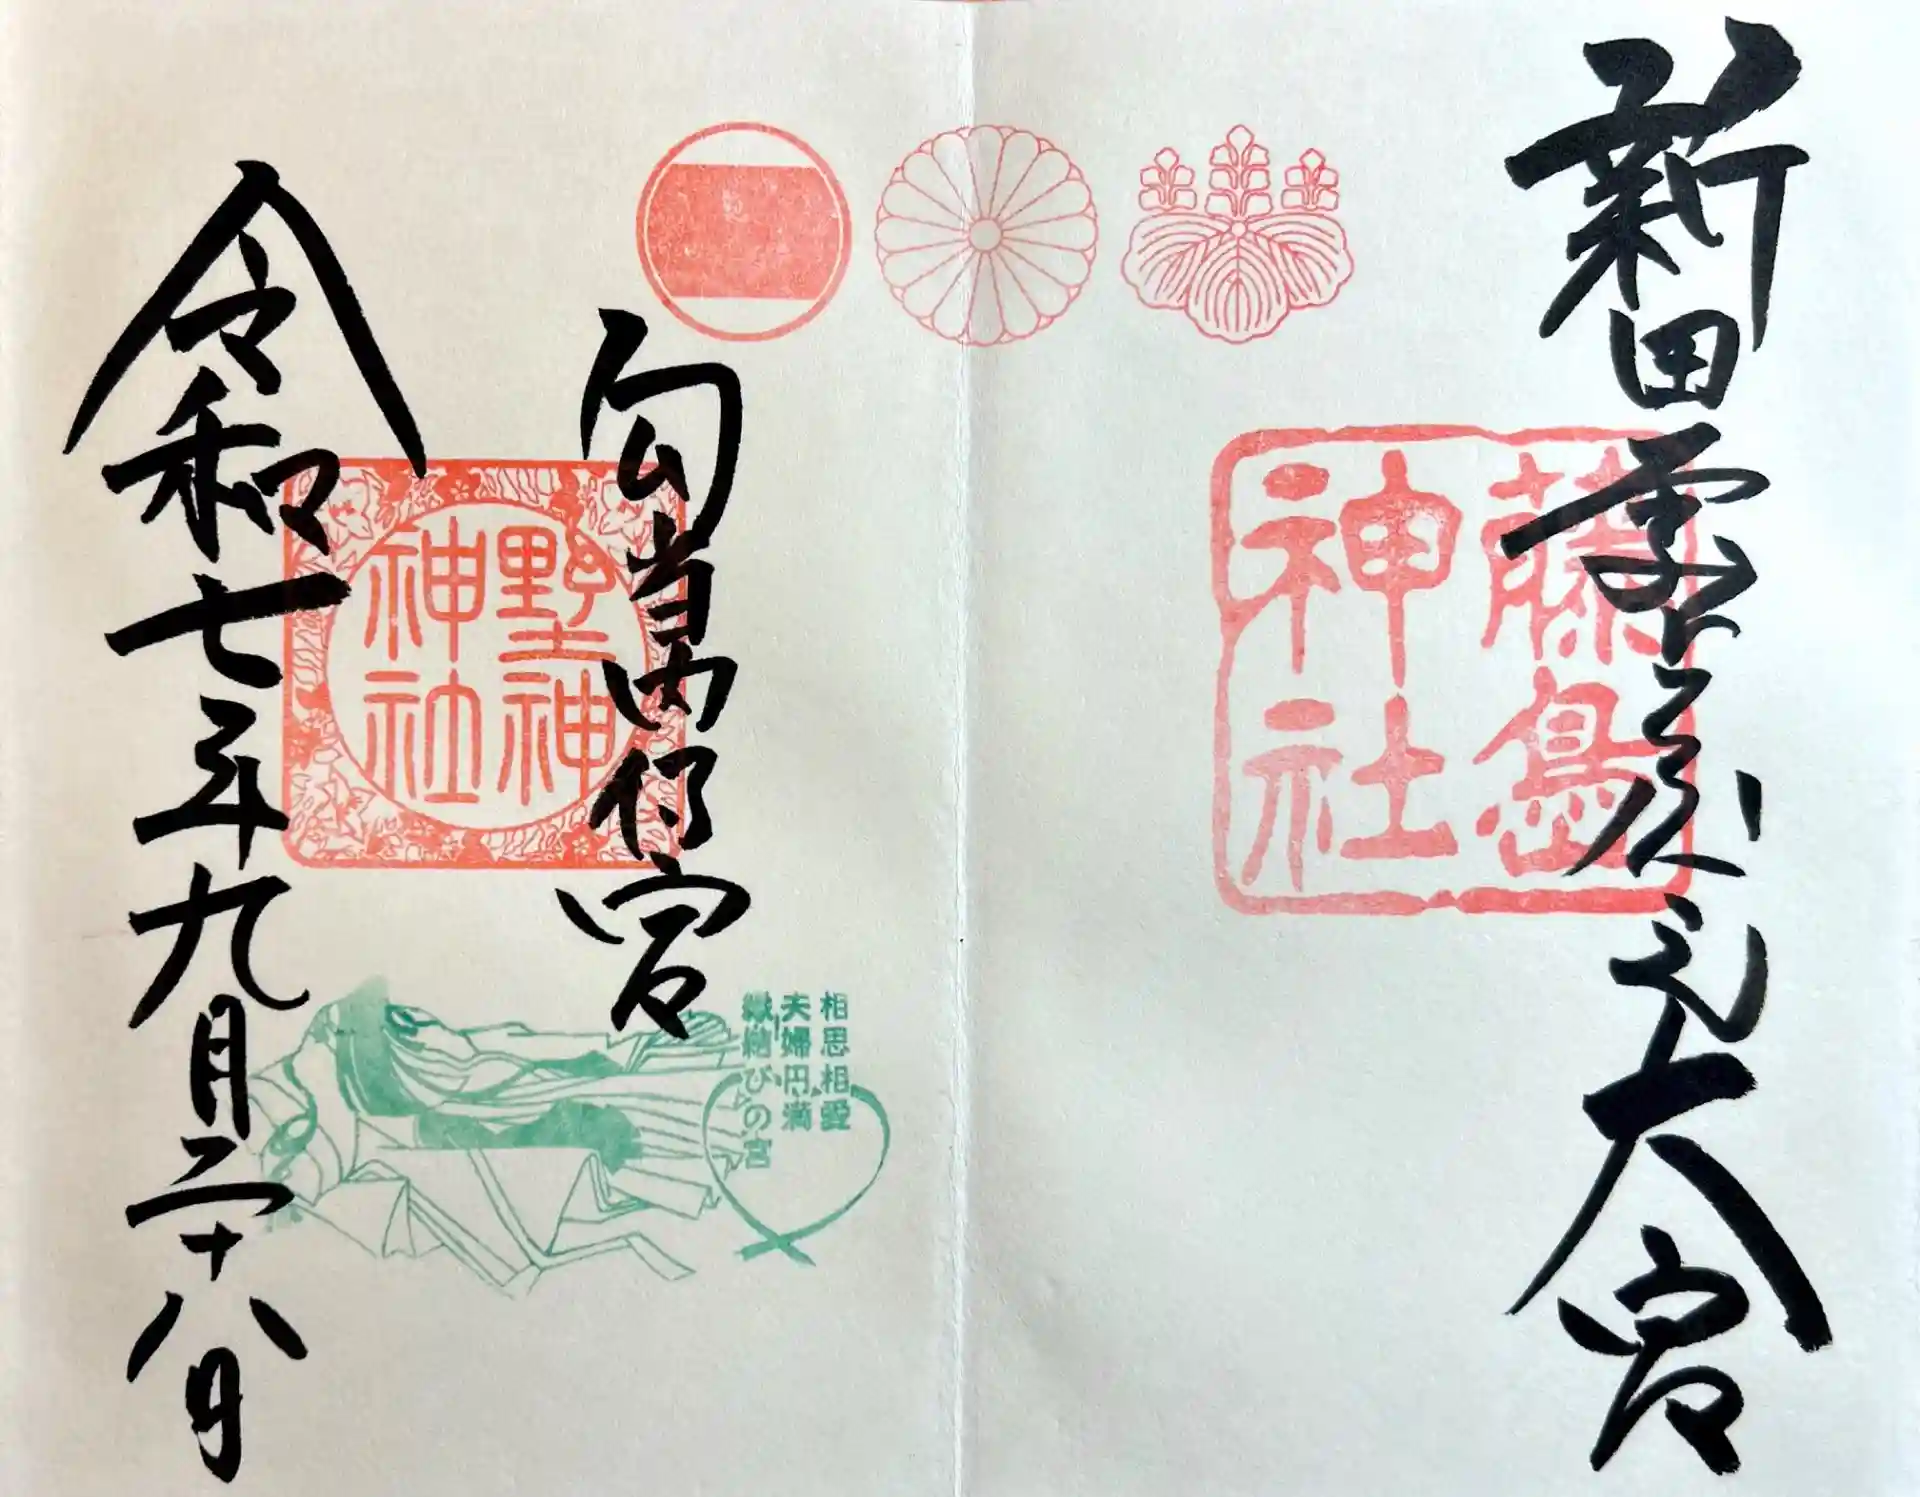 新田
之大宮
藤島
神社
勾當内侍宮
野神
神社
相思相愛
夫婦円満
縁結びの宮
令和七年九月二十八日